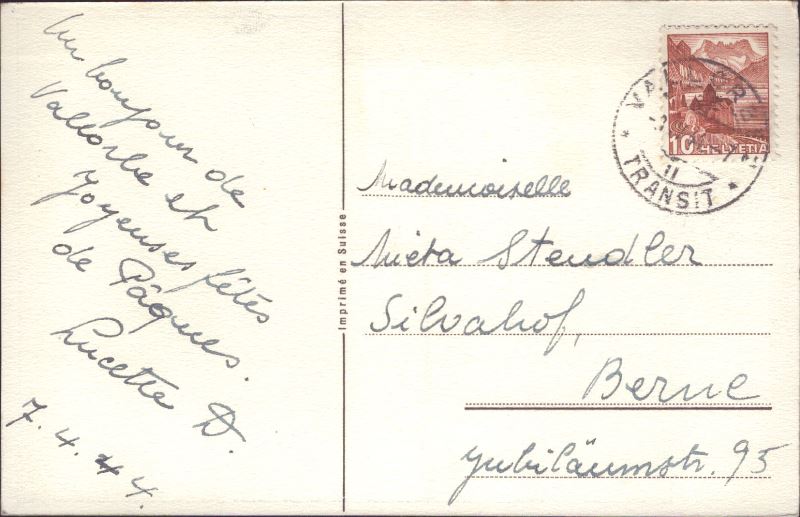 Un bonjour de
Vallorbe et
Joyeuses fêtes
de Pâques.
Lucette D.
7.4.44.
Imprimé en Suisse
Mademoiselle
Stendler
Silvahof,
Berne
Jubiläumstr. 95
10 HELVETIA
TRANSIT